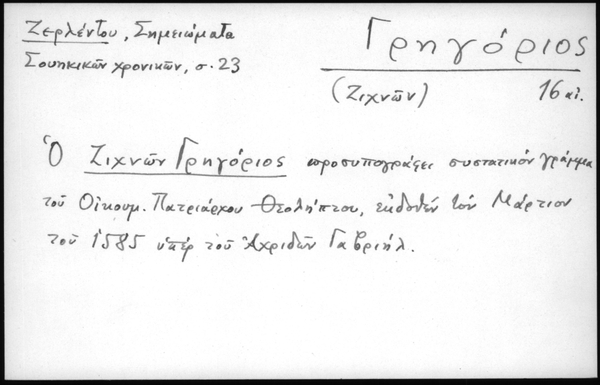 Ζερλέντου, Σημειώματα
Σουηκικῶν χρονικῶν, σ. 23
Γρηγόριος
(Ζιχνῶν) 16 αἰ.
Ὁ Ζιχνῶν Γρηγόριος προσυπογράφει συστατικόν γράμμα
τοῦ Οἰκουμ. Πατριάρχου Θεολήπτου, ἐκδοθέν τόν Μάρτιον
τοῦ 1585 ὑπέρ τοῦ Ἀχριδῶν Γαβριήλ.